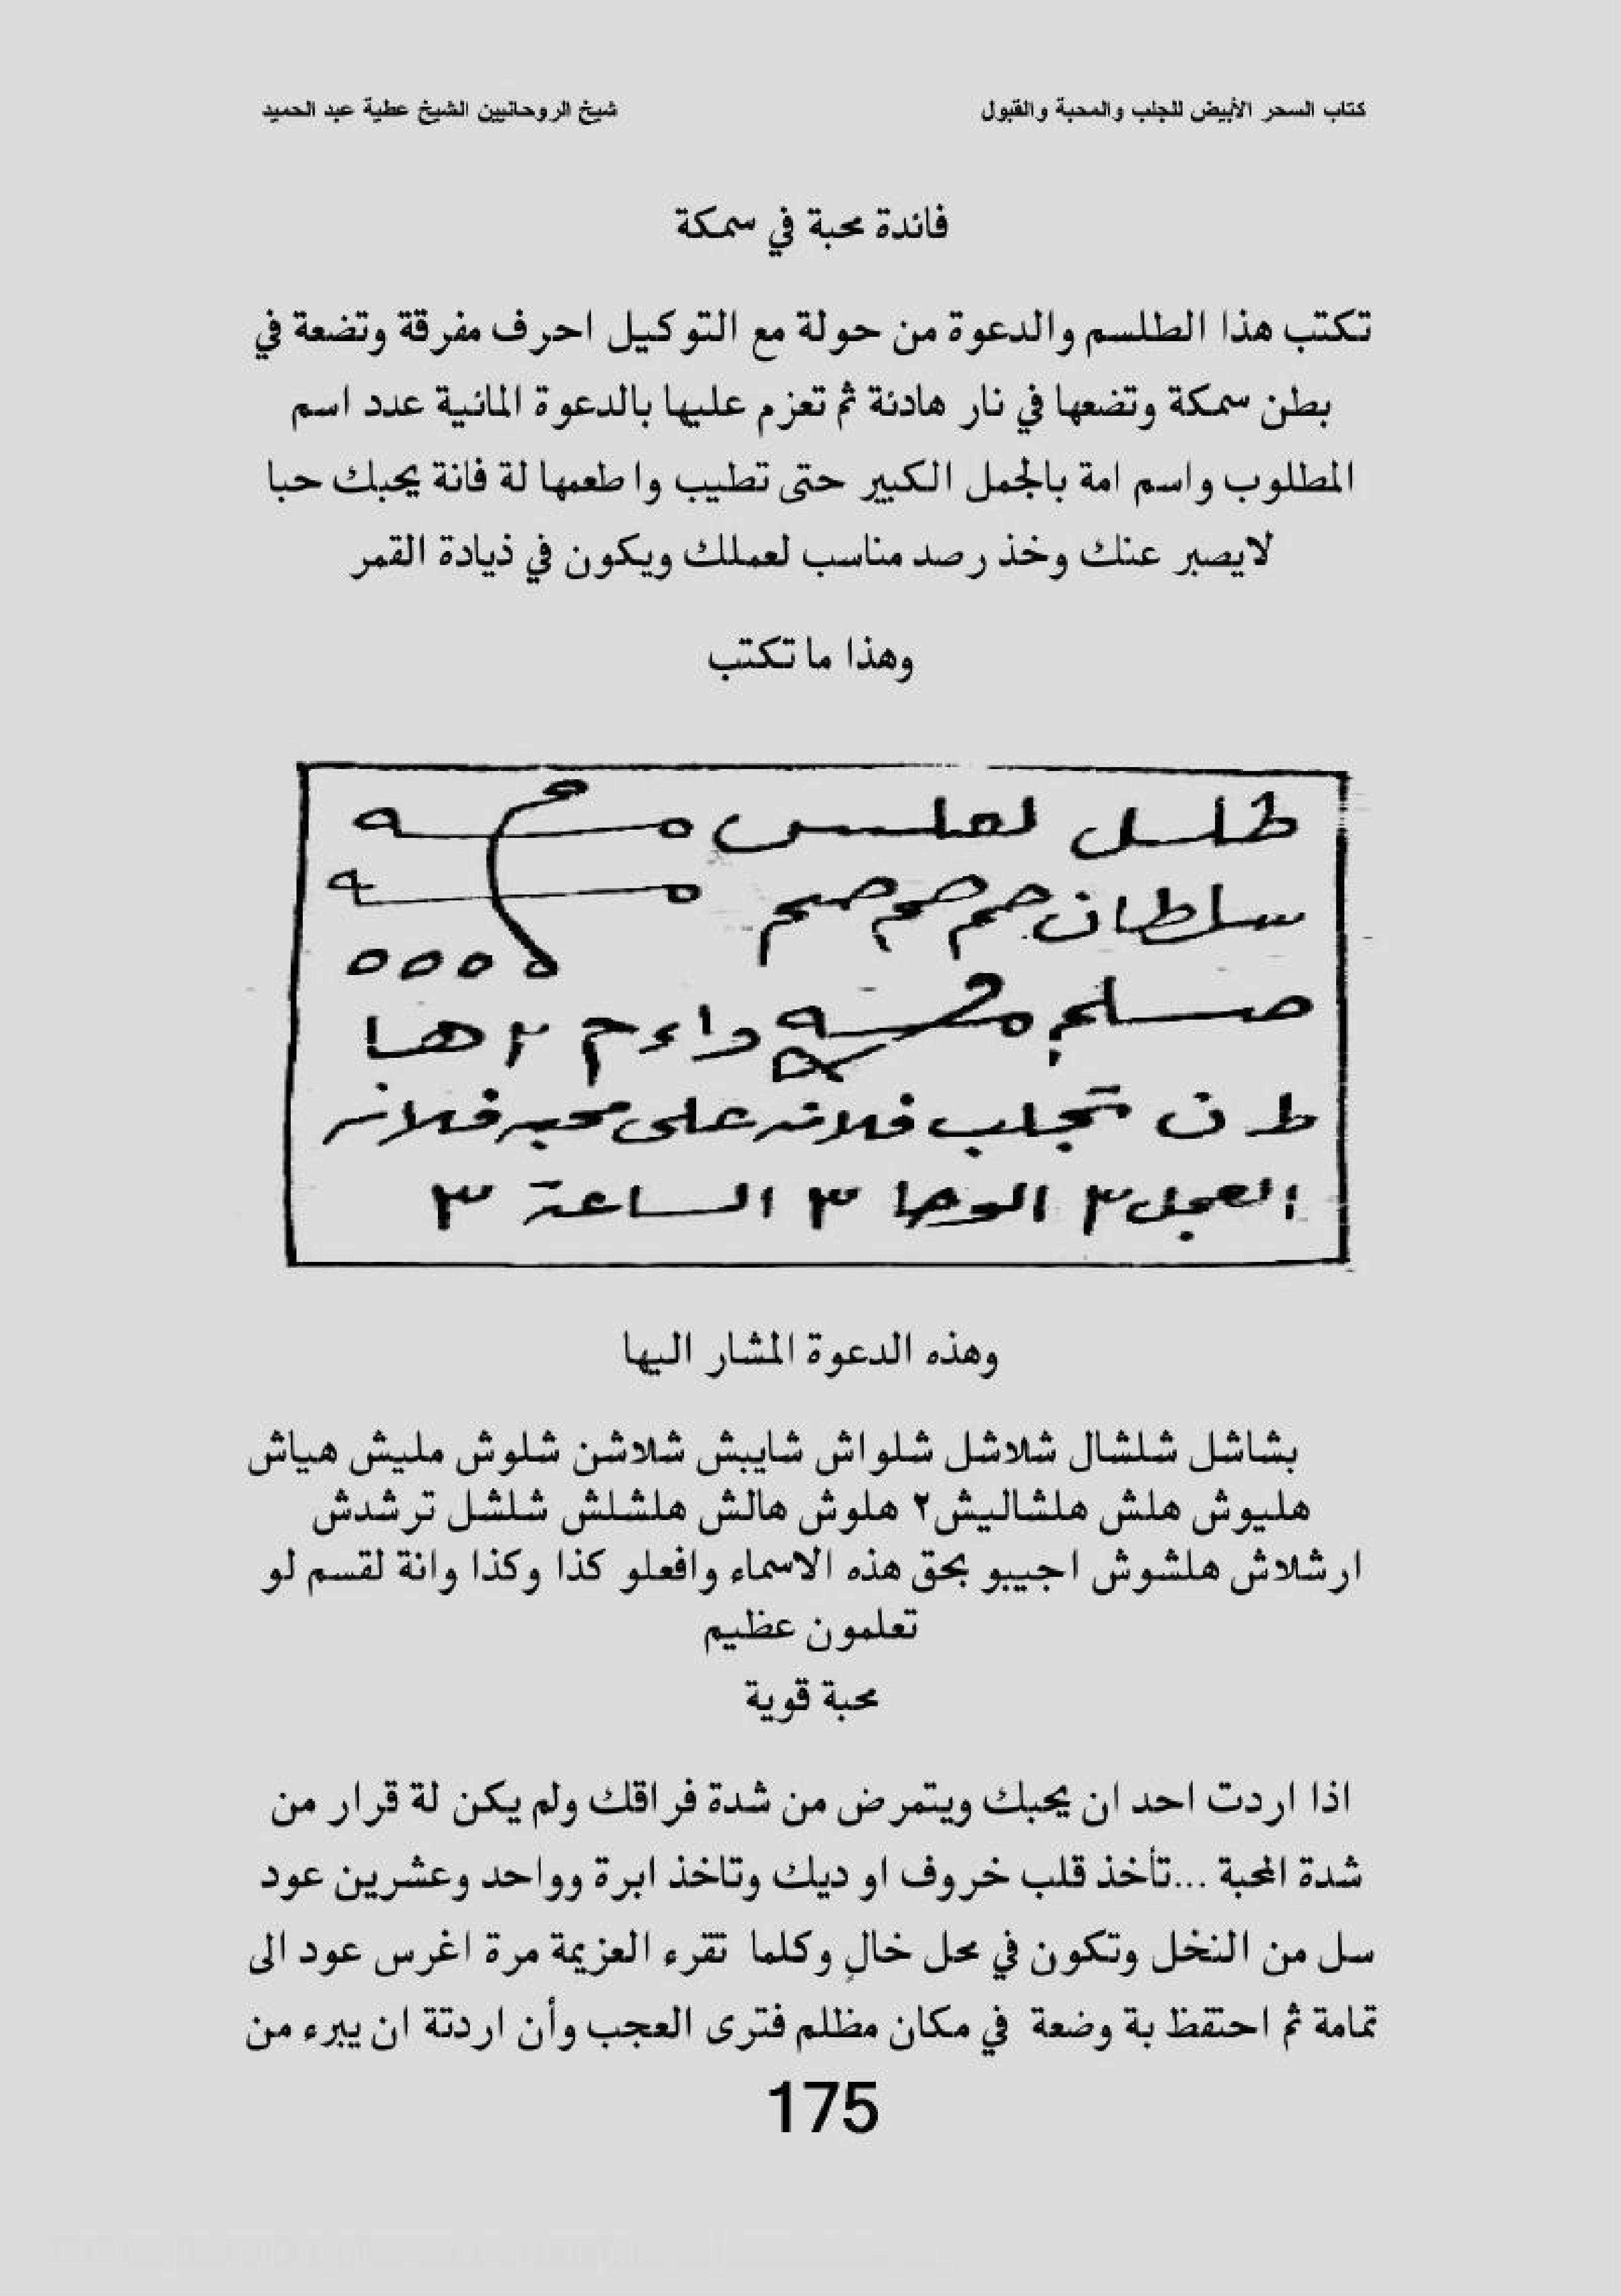 كتاب السحر الأبيض للجلب والمحبة والقبول
شيخ الروحانيين الشيخ عطية عبد الحميد
فائدة محبة في سمكة
تكتب هذا الطلسم والدعوة من حولة مع التوكيل احرف مفرقة وتضعة في
بطن سمكة وتضعها في نار هادئة ثم تعزم عليها بالدعوة المائية عدد اسم
المطلوب واسم امة بالجمل الكبير حتى تطيب واطعمها لة فانة يحبك حبا
لايصبر عنك وخذ رصد مناسب لعملك ويكون في ذيادة القمر
وهذا ما تكتب
طلسل لعلس
سلطان
ط ن تجلب فلانه على محبه فلانه
العجل ٣ الوحا ٣ الساعة ٣
وهذه الدعوة المشار اليها
بشاشل شلشال شلاشل شلواش شايبش شلاشن شلوش مليش هياش
هليوش هلش هلشاليش٢ هلوش هالش هلشلش شلشل ترشدش
ارشلاش هلشوش اجيبو بحق هذه الاسماء وافعلو كذا وكذا وانة لقسم لو
تعلمون عظيم
محبة قوية
اذا اردت احد ان يحبك ويتمرض من شدة فراقك ولم يكن لة قرار من
شدة المحبة ...تأخذ قلب خروف او ديك وتاخذ ابرة وواحد وعشرين عود
سل من النخل وتكون في محل خالٍ وكلما تقرء العزيمة مرة اغرس عود الى
تمامة ثم احتفظ بة وضعة في مكان مظلم فترى العجب وأن اردتة ان يبرء من
175